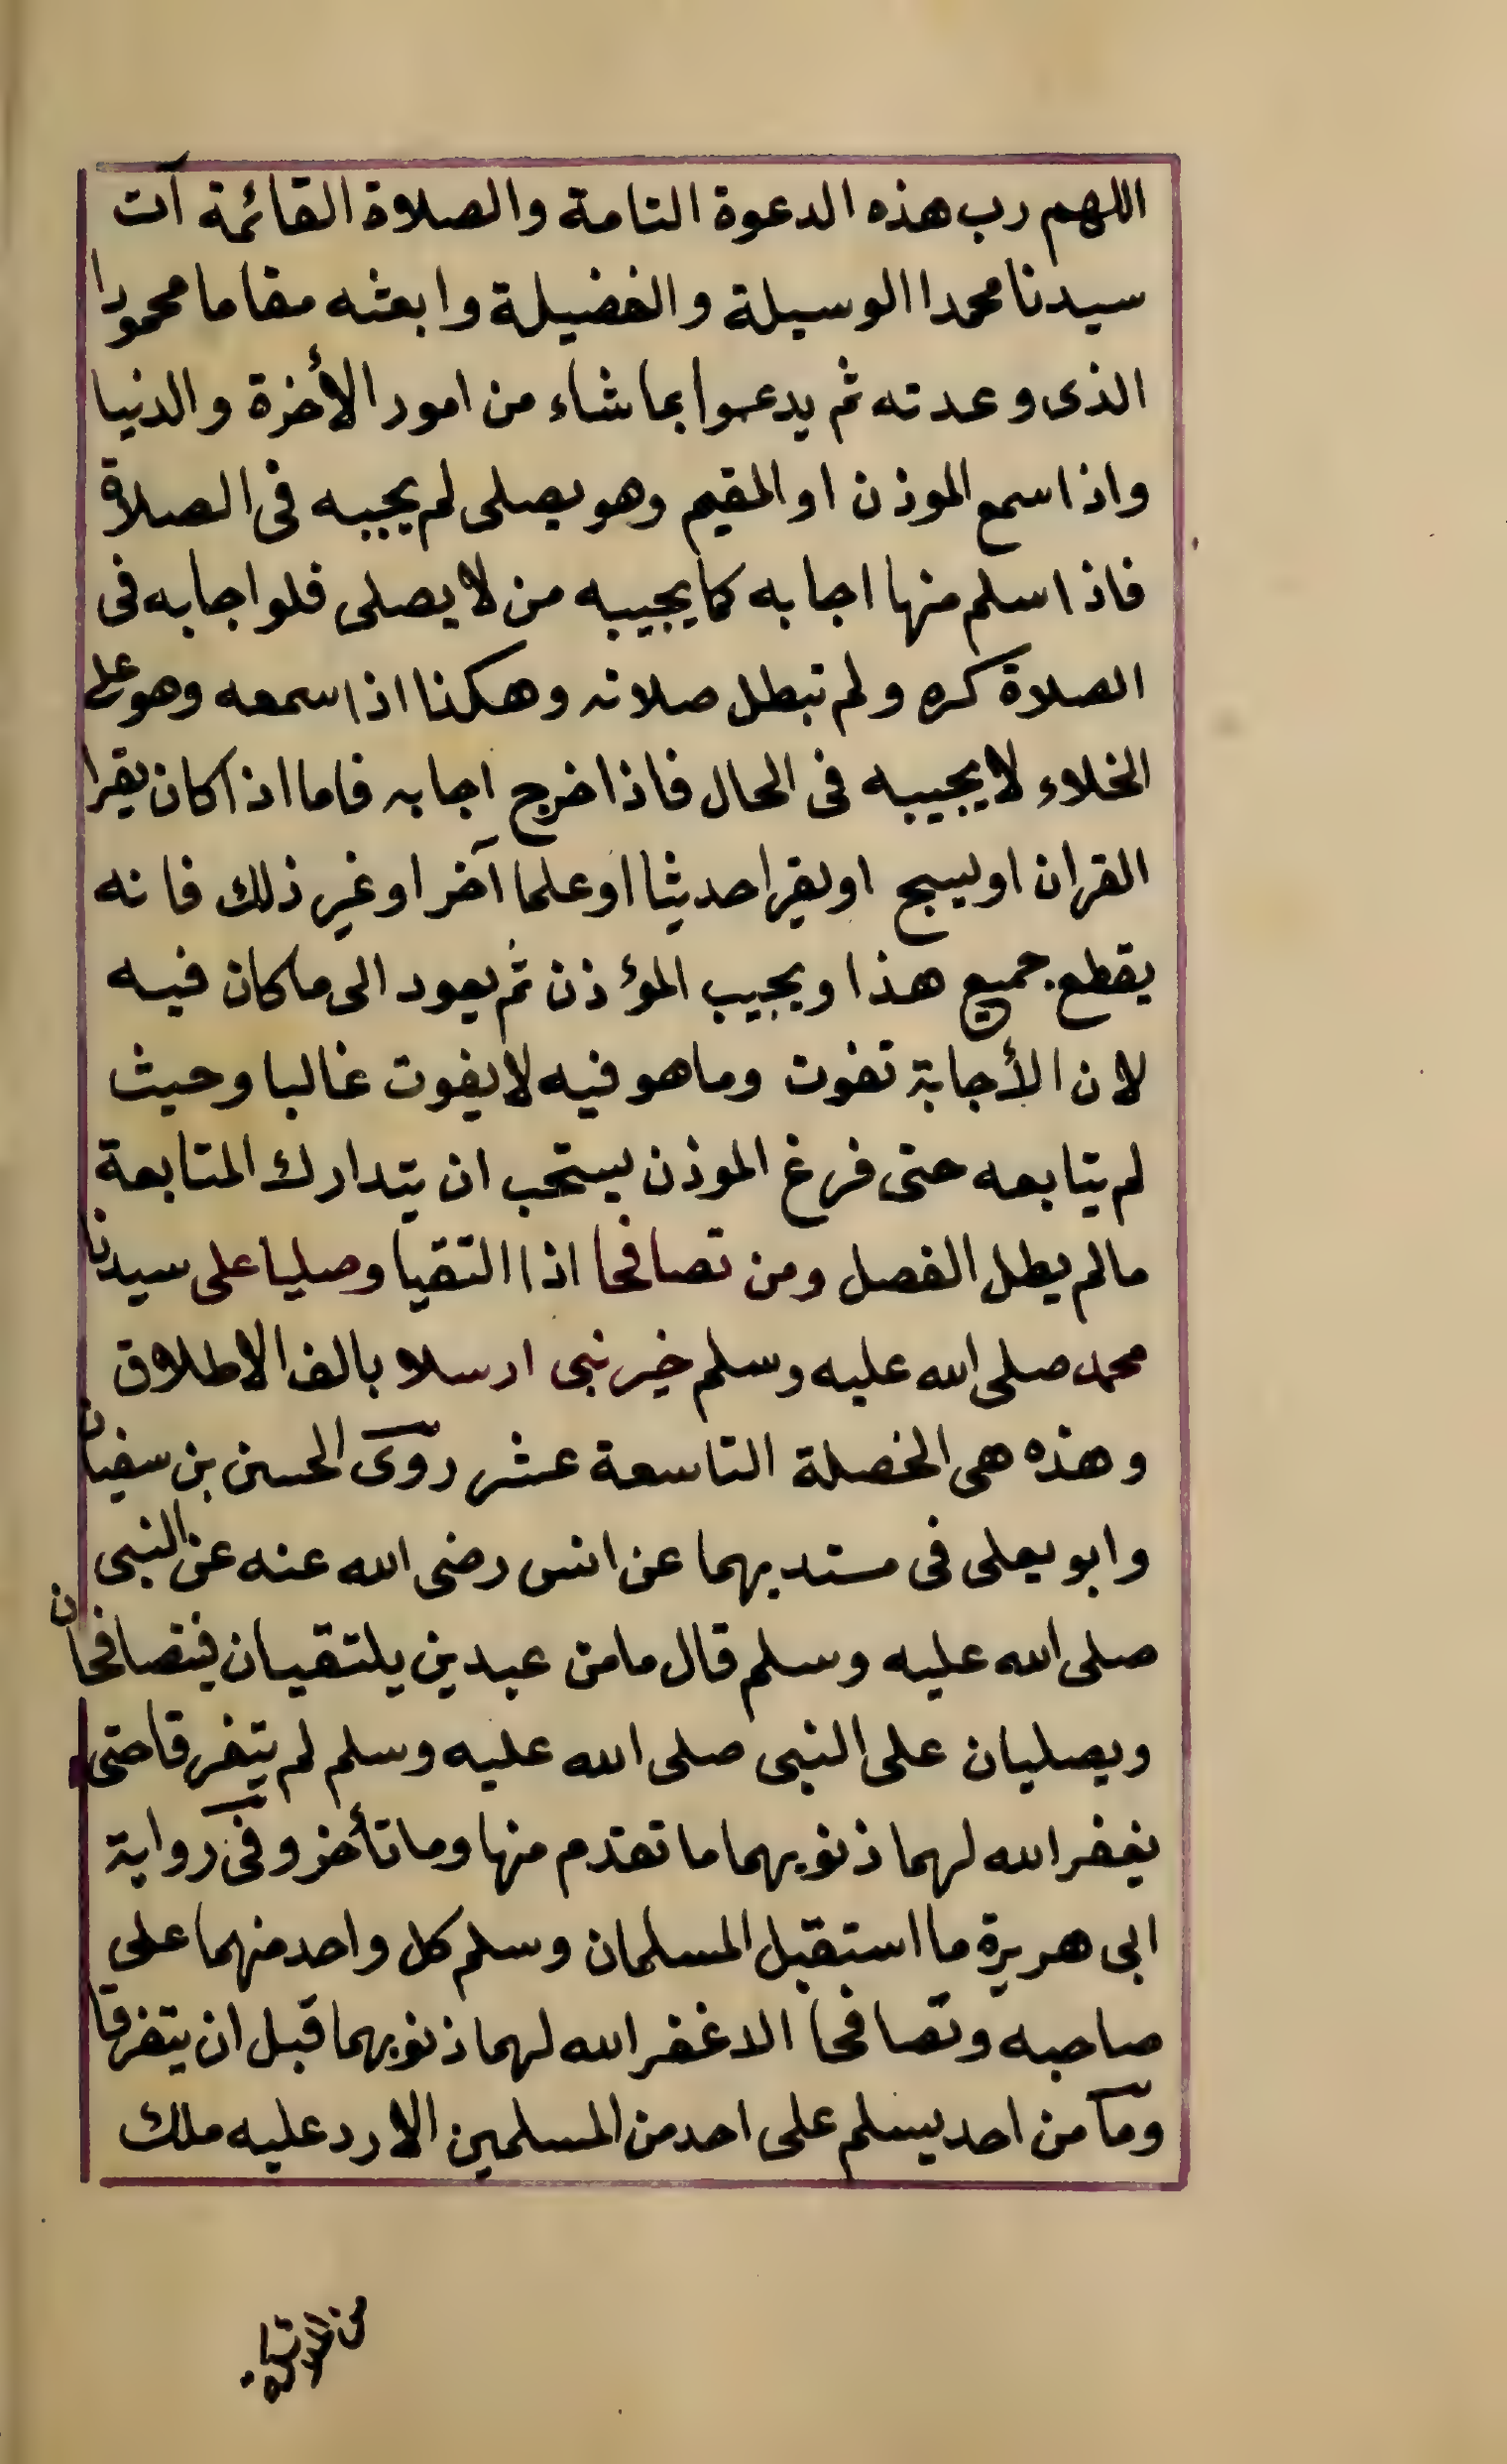 اللهم رب هذه الدعوة التامة والصلاة القائمة آت
سيدنا محمدا الوسيلة والفضيلة وابعثه مقاما محمودا
الذى وعدته ثم يدعوا بما شاء من امور الأخرة والدنيا
واذا سمع الموذن او المقيم وهو يصلى لم يجيبه فى الصلاة
فاذا سلم منها اجابه كما يجيبه من لا يصلى فلو اجابه فى
الصلاة كره ولم تبطل صلاته وهكذا اذا سمعه وهو على
الخلاء لا يجيبه فى الحال فاذا خرج اجابه فاما اذا كان يقرا
القران او يسبح او يقرا حديثا او علما آخر او غير ذلك فانه
يقطع جميع هذا ويجيب المؤذن ثم يعود الى ما كان فيه
لان الأجابة تفوت وما هو فيه لا يفوت غالبا وحيث
لم يتابعه حتى فرغ الموذن يستحب ان يتدارك المتابعة
مالم يطل الفصل ومن تصافحا اذا التقيا وصليا على سيدنا
محمد صلى الله عليه وسلم خير نبى ارسلا بالف الاطلاق
وهذه هى الخصلة التاسعة عشر روى الحسن بن سفيان
وابو يعلى فى مسنديهما عن انس رضى الله عنه عن النبى
صلى الله عليه وسلم قال مامن عبدين يلتقيان فيتصافحان
ويصليان على النبى صلى الله عليه وسلم لم يتفرقا حتى
يغفر الله لهما ذنوبهما ما تقدم منها وما تأخر وفى رواية
ابى هريرة ما استقبل المسلمان وسلم كل واحد منهما على
صاحبه وتصافحا الا غفر الله لهما ذنوبهما قبل ان يتفرقا
وما من احد يسلم على احد من المسلمين الا رد عليه ملك